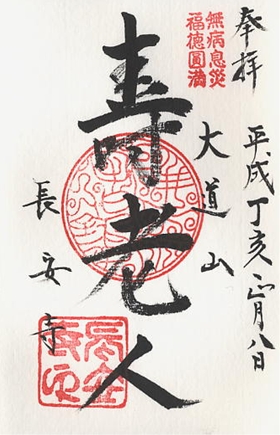 奉拝
平成丁亥正月八日
無病息災
福徳圓満
大道山
壽老人
長安寺